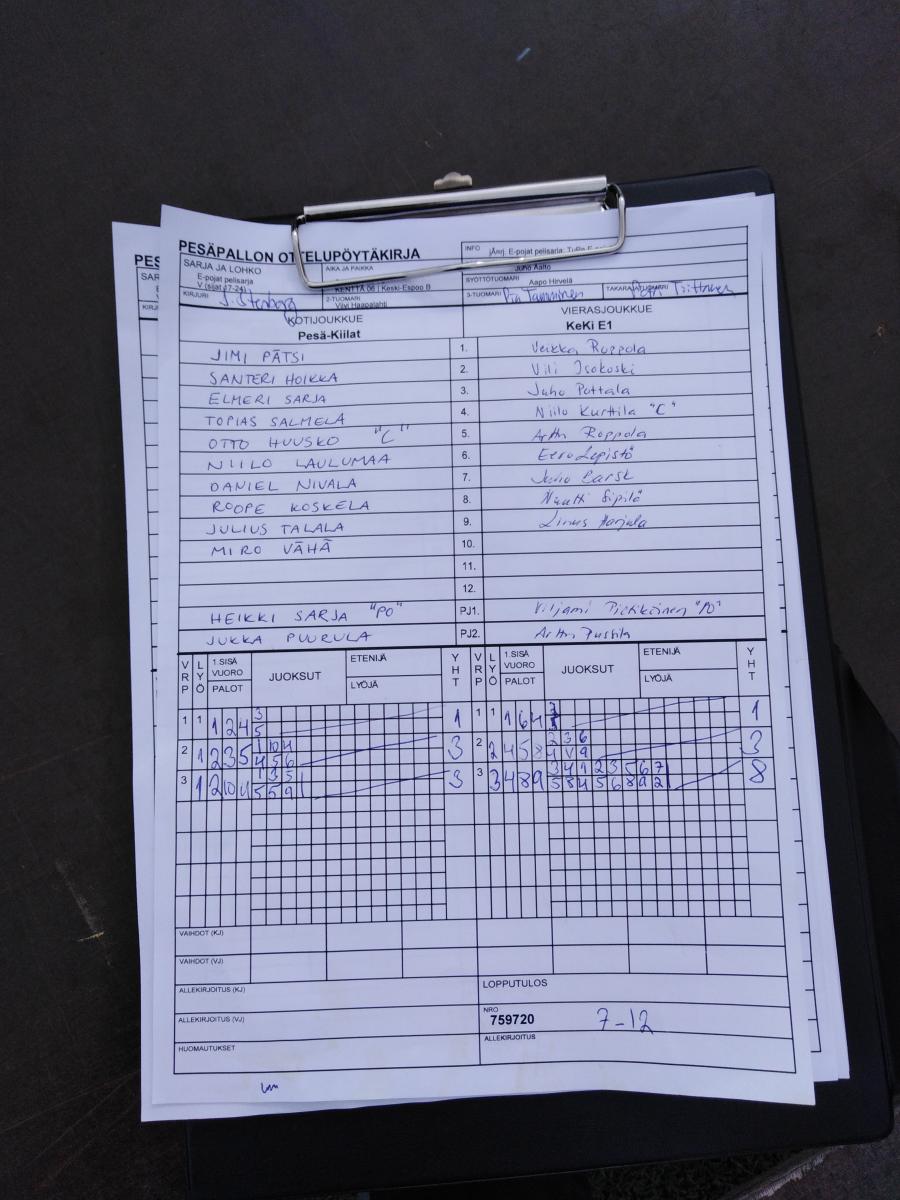 PESÄPALLON OTTELUPÖYTÄKIRJA
INFO
E-pojat pelisarja:
SARJA JA LOHKO
E-pojat pelisarja
V (sijat 17-24)
AIKA JA PAIKKA
KENTTÄ 06 | Keski-Espoo B
Juho Aalto
SYÖTTÖTUOMARI
Aapo Hirvelä
KIRJURI
J. Stenberg
2-TUOMARI
Viivi Haapalahti
3-TUOMARI
Tamminen
TAKARAJATUOMARI
KOTIJOUKKUE
Pesä-Kiilat
VIERASJOUKKUE
KeKi E1
JIMI PÄTSI 1. Veikka Roppola
SANTERI HOIKKA 2. Vili Isokoski
ELMERI SARJA 3. Juho Pottala
TOPIAS SALMELA 4. Niilo Kurttila "C"
OTTO HUUSKO "C" 5. Arttu Roppola
NIILO LAULUMAA 6. Eero Lepistö
DANIEL NIVALA 7. Juho
ROOPE KOSKELA 8. Sipilä
JULIUS TALALA 9. Linus Harjula
MIRO VÄHÄ 10.
11.
12.
HEIKKI SARJA "PO" PJ1. Viljami Pietikäinen "PO"
JUKKA PUURULA PJ2. Arttu
VRP LYÖ 1.SISÄ VUORO PALOT JUOKSUT ETENIJÄ LYÖJÄ YHT VRP LYÖ 1.SISÄ VUORO PALOT JUOKSUT ETENIJÄ LYÖJÄ YHT
1 1 1 2 4 3 5 1 1 1 1 6 4 3 1
2 1 2 3 5 1 10 4 4 5 6 3 2 2 4 5 8 2 3 6 4 9 3
3 1 2 10 4 1 3 5 5 5 9 1 3 3 3 4 8 9 8
VAIHDOT (KJ)
VAIHDOT (VJ)
ALLEKIRJOITUS (KJ)
LOPPUTULOS
ALLEKIRJOITUS (VJ)
NRO
759720 7-12
HUOMAUTUKSET
ALLEKIRJOITUS